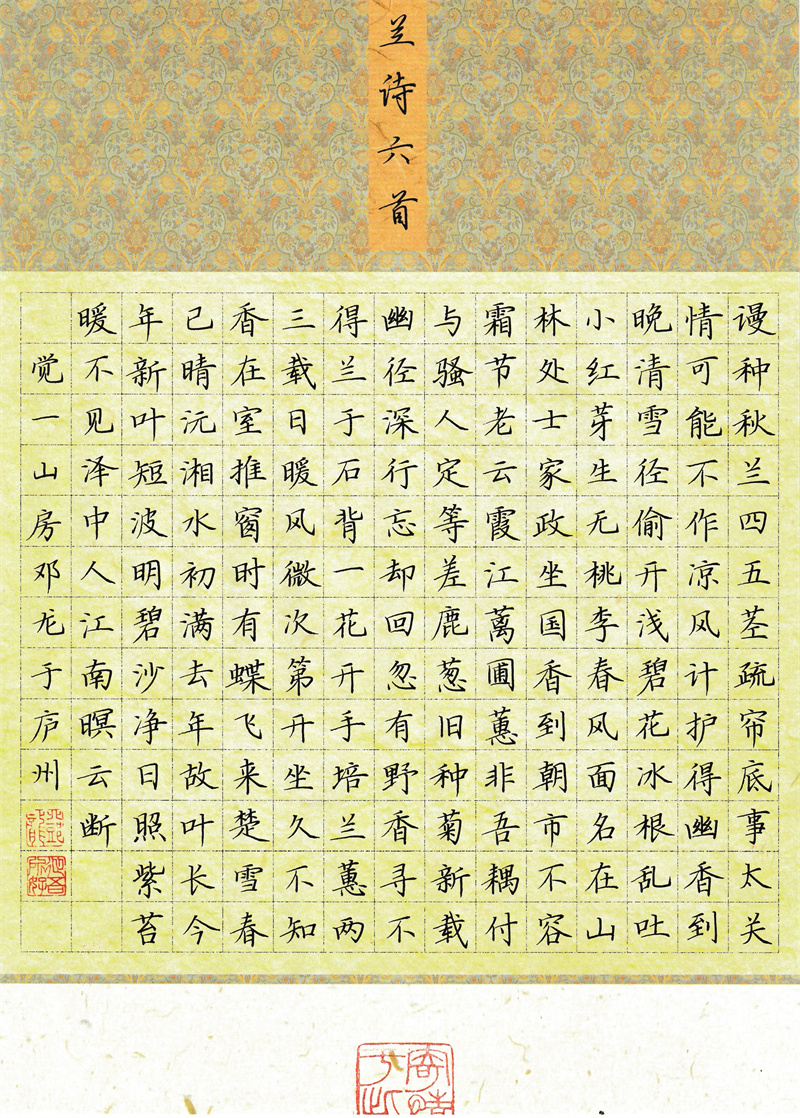 兰诗六首
谩种秋兰四五茎疏帘底事太关
情可能不作凉风计护得幽香到
晚清雪径偷开浅碧花冰根乱吐
小红芽生无桃李春风面名在山
林处士家政坐国香到朝市不容
霜节老云霞江萬圃蕙非吾耦付
与骚人定等差鹿葱旧种菊新载
幽径深行忘却回忽有野香寻不
得兰于石背一花开手培兰蕙两
三载日暖风微次第开坐久不知
香在室推窗时有蝶飞来楚雪春
己晴沅湘水初满去年故叶长今
年新叶短波明碧沙净日照紫苔
暖不见泽中人江南暝云断
觉一山房邓龙于庐州